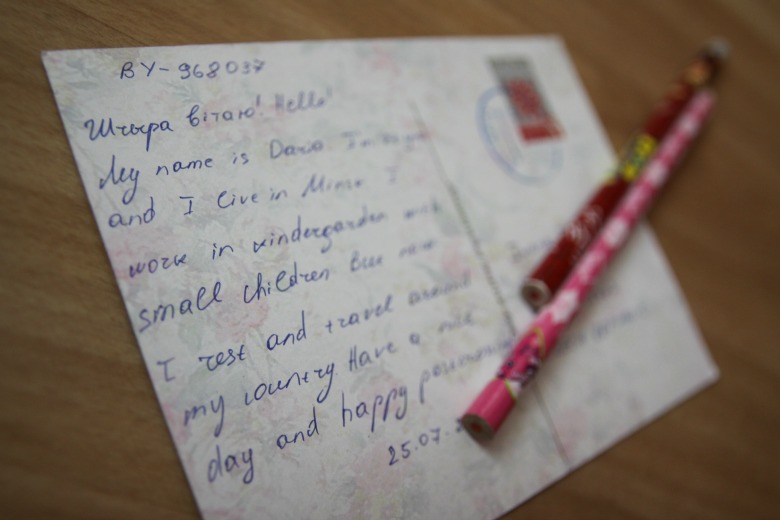 BY-968037
Шчыра вітаю! Hello!
My name is Daria. I'm
and I live in Minsk I
work in kindergarden with
small children But now
I rest and travel around
my country. Have a nice
day and happy
25.07.